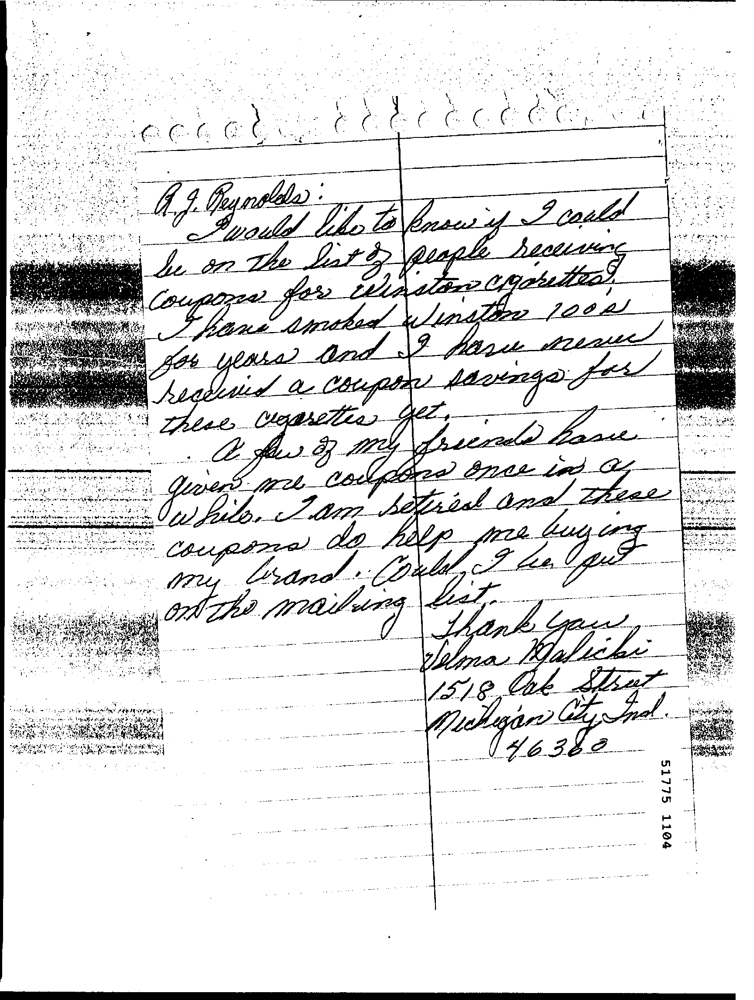 R.J. Reynolds:
I would like to know if I could
be on the list of people receiving
coupons for Winston cigarettes?
I have smoked Winston 100's
for years and I have never
received a coupon savings for
these cigarettes yet.
A few of my friends have
given me coupons once in a
while. I am retired and these
coupons do help me buying
my brand. Could I be put
on the mailing list.
Thank you
Velma Malicki
1518 Oak Street
Michigan City, Ind.
46360
51775 1104